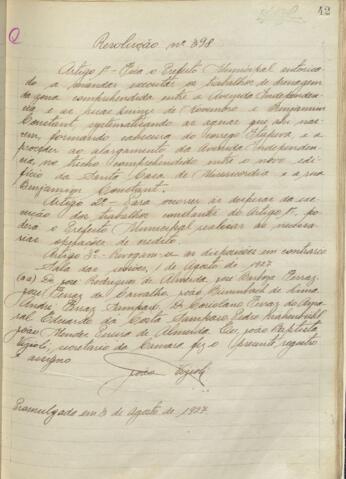 42
Resolução nº 398
Artigo 1º - Fica o Prefeito Municipal autorisa-
do a mandar executar os trabalhos de drenagem
da zona comprehendida entre a Avenida Independen-
cia e as ruas Quinze de Novembro e Benjamin
Constant, systematisando as aguas que ahi nas-
cem, formando cabeceira do corrego Itapeva e a
proceder ao alargamento da Avenida Indepen-
dencia, no trecho comprehendido entre o novo edi-
ficio da Santa Casa de Misericordia e a rua
Benjamin Constant.
Artigo 2º - Para ocorrer as despezas da exe-
cução dos trabalhos constantes do Artigo 1º, po-
derá o Prefeito Municipal realisar as necessa-
rias operações de credito.
Artigo 3º - Revogam-se as disposições em contrario
Sala das sessões, 1 de Agosto de 1927.
(aa) José Rodrigues de Almeida, Barboza Ferraz,
José Ferraz de Carvalho, João de Lima,
André Ferraz Sampaio, Dr Coriolano Ferraz do Ama-
ral, Eduardo da Costa Sampaio, Pedro Krahenbuhl,
João Mendes Pereira de Almeida. Eu, João Baptista
Vizioli, secretario da Camara fiz o presente registro
e assigno
João Vizioli
Promulgado em 3 de Agosto de 1927.